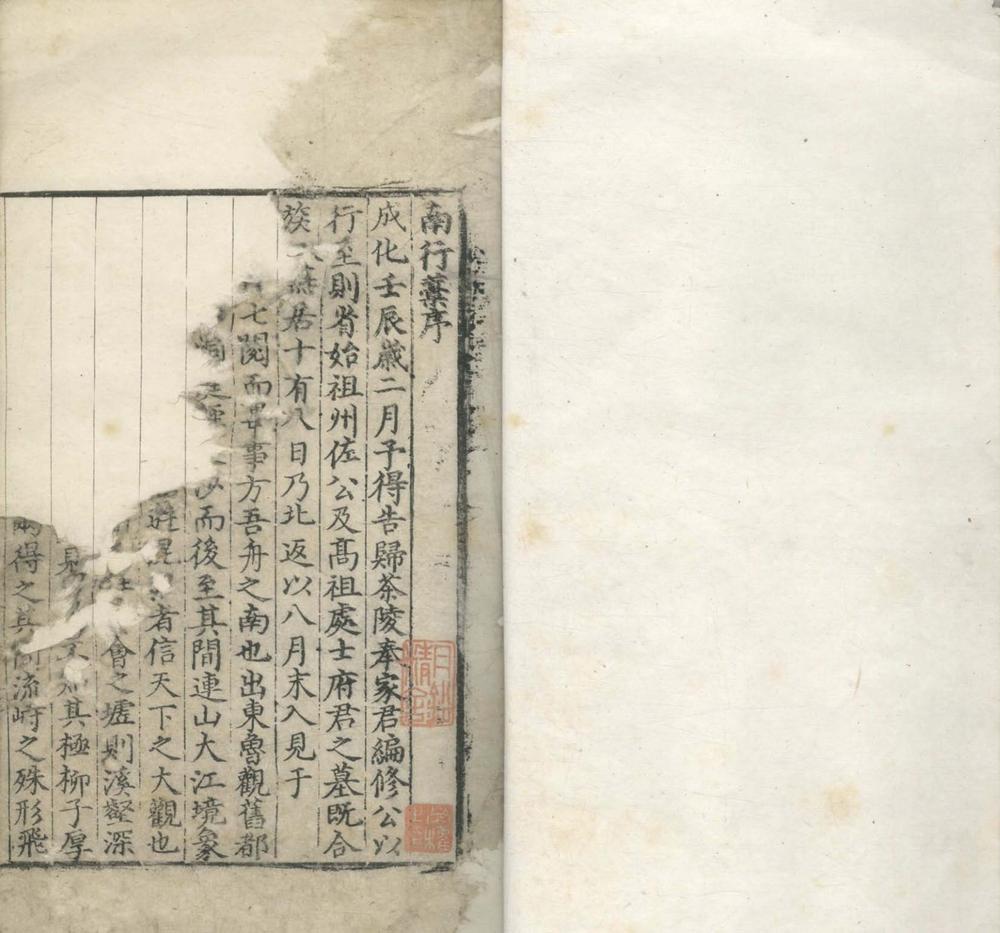 南行藁序
成化壬辰歲二月予得告歸茶陵奉家君編修公以
行至則省始祖州佐公及髙祖處士府君之墓既合
族居十有八日乃北返以八月末入見于
七閱而畢事方吾舟之南也出東魯觀舊都
而後至其間連山大江境象
者信天下之大觀也
會之墟則溪壑深
見其極柳子厚
得之其流峙之殊形飛